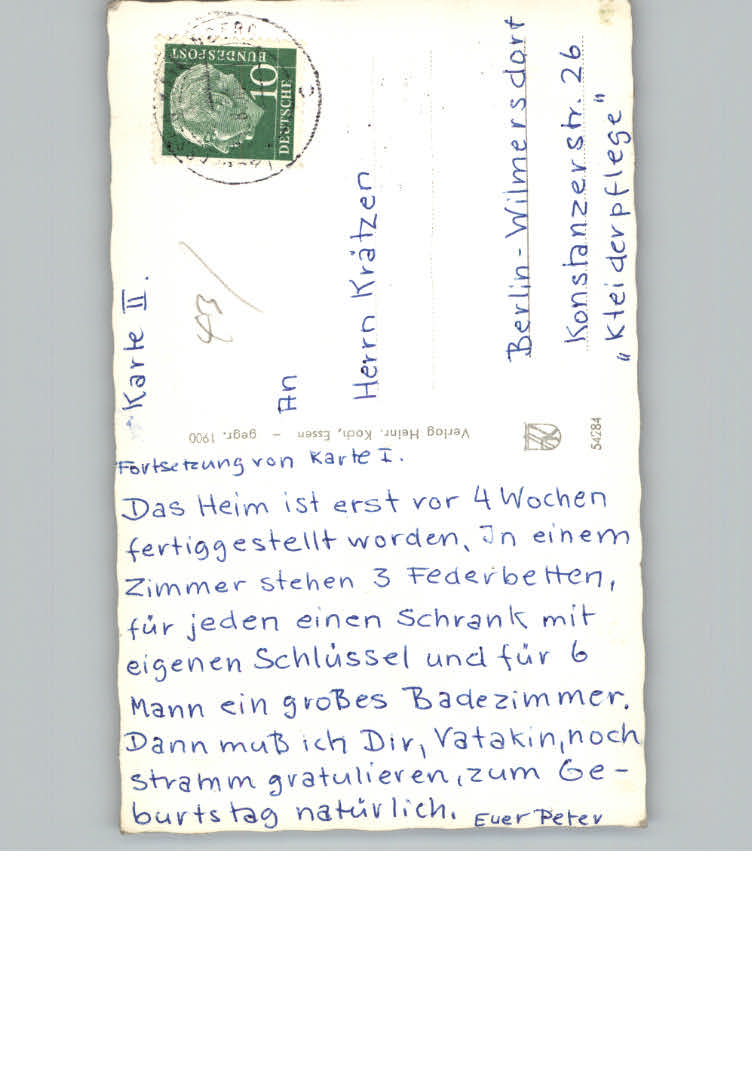 Karte II.
DEUTSCHE
BUNDESPOST
10
An
Herrn Krätzen
Berlin-Wilmersdorf
Konstanzerstr. 26
"Kleiderpflege"
Verlag Heinr. Koch, Essen – gegr. 1900
54284
Fortsetzung von Karte I.
Das Heim ist erst vor 4 Wochen
fertiggestellt worden. In einem
Zimmer stehen 3 Federbetten,
für jeden einen Schrank mit
eigenen Schlüssel und für 6
Mann ein großes Badezimmer.
Dann muß ich Dir, Vatakin, noch
stramm gratulieren, zum Ge-
burtstag natürlich. Euer Peter